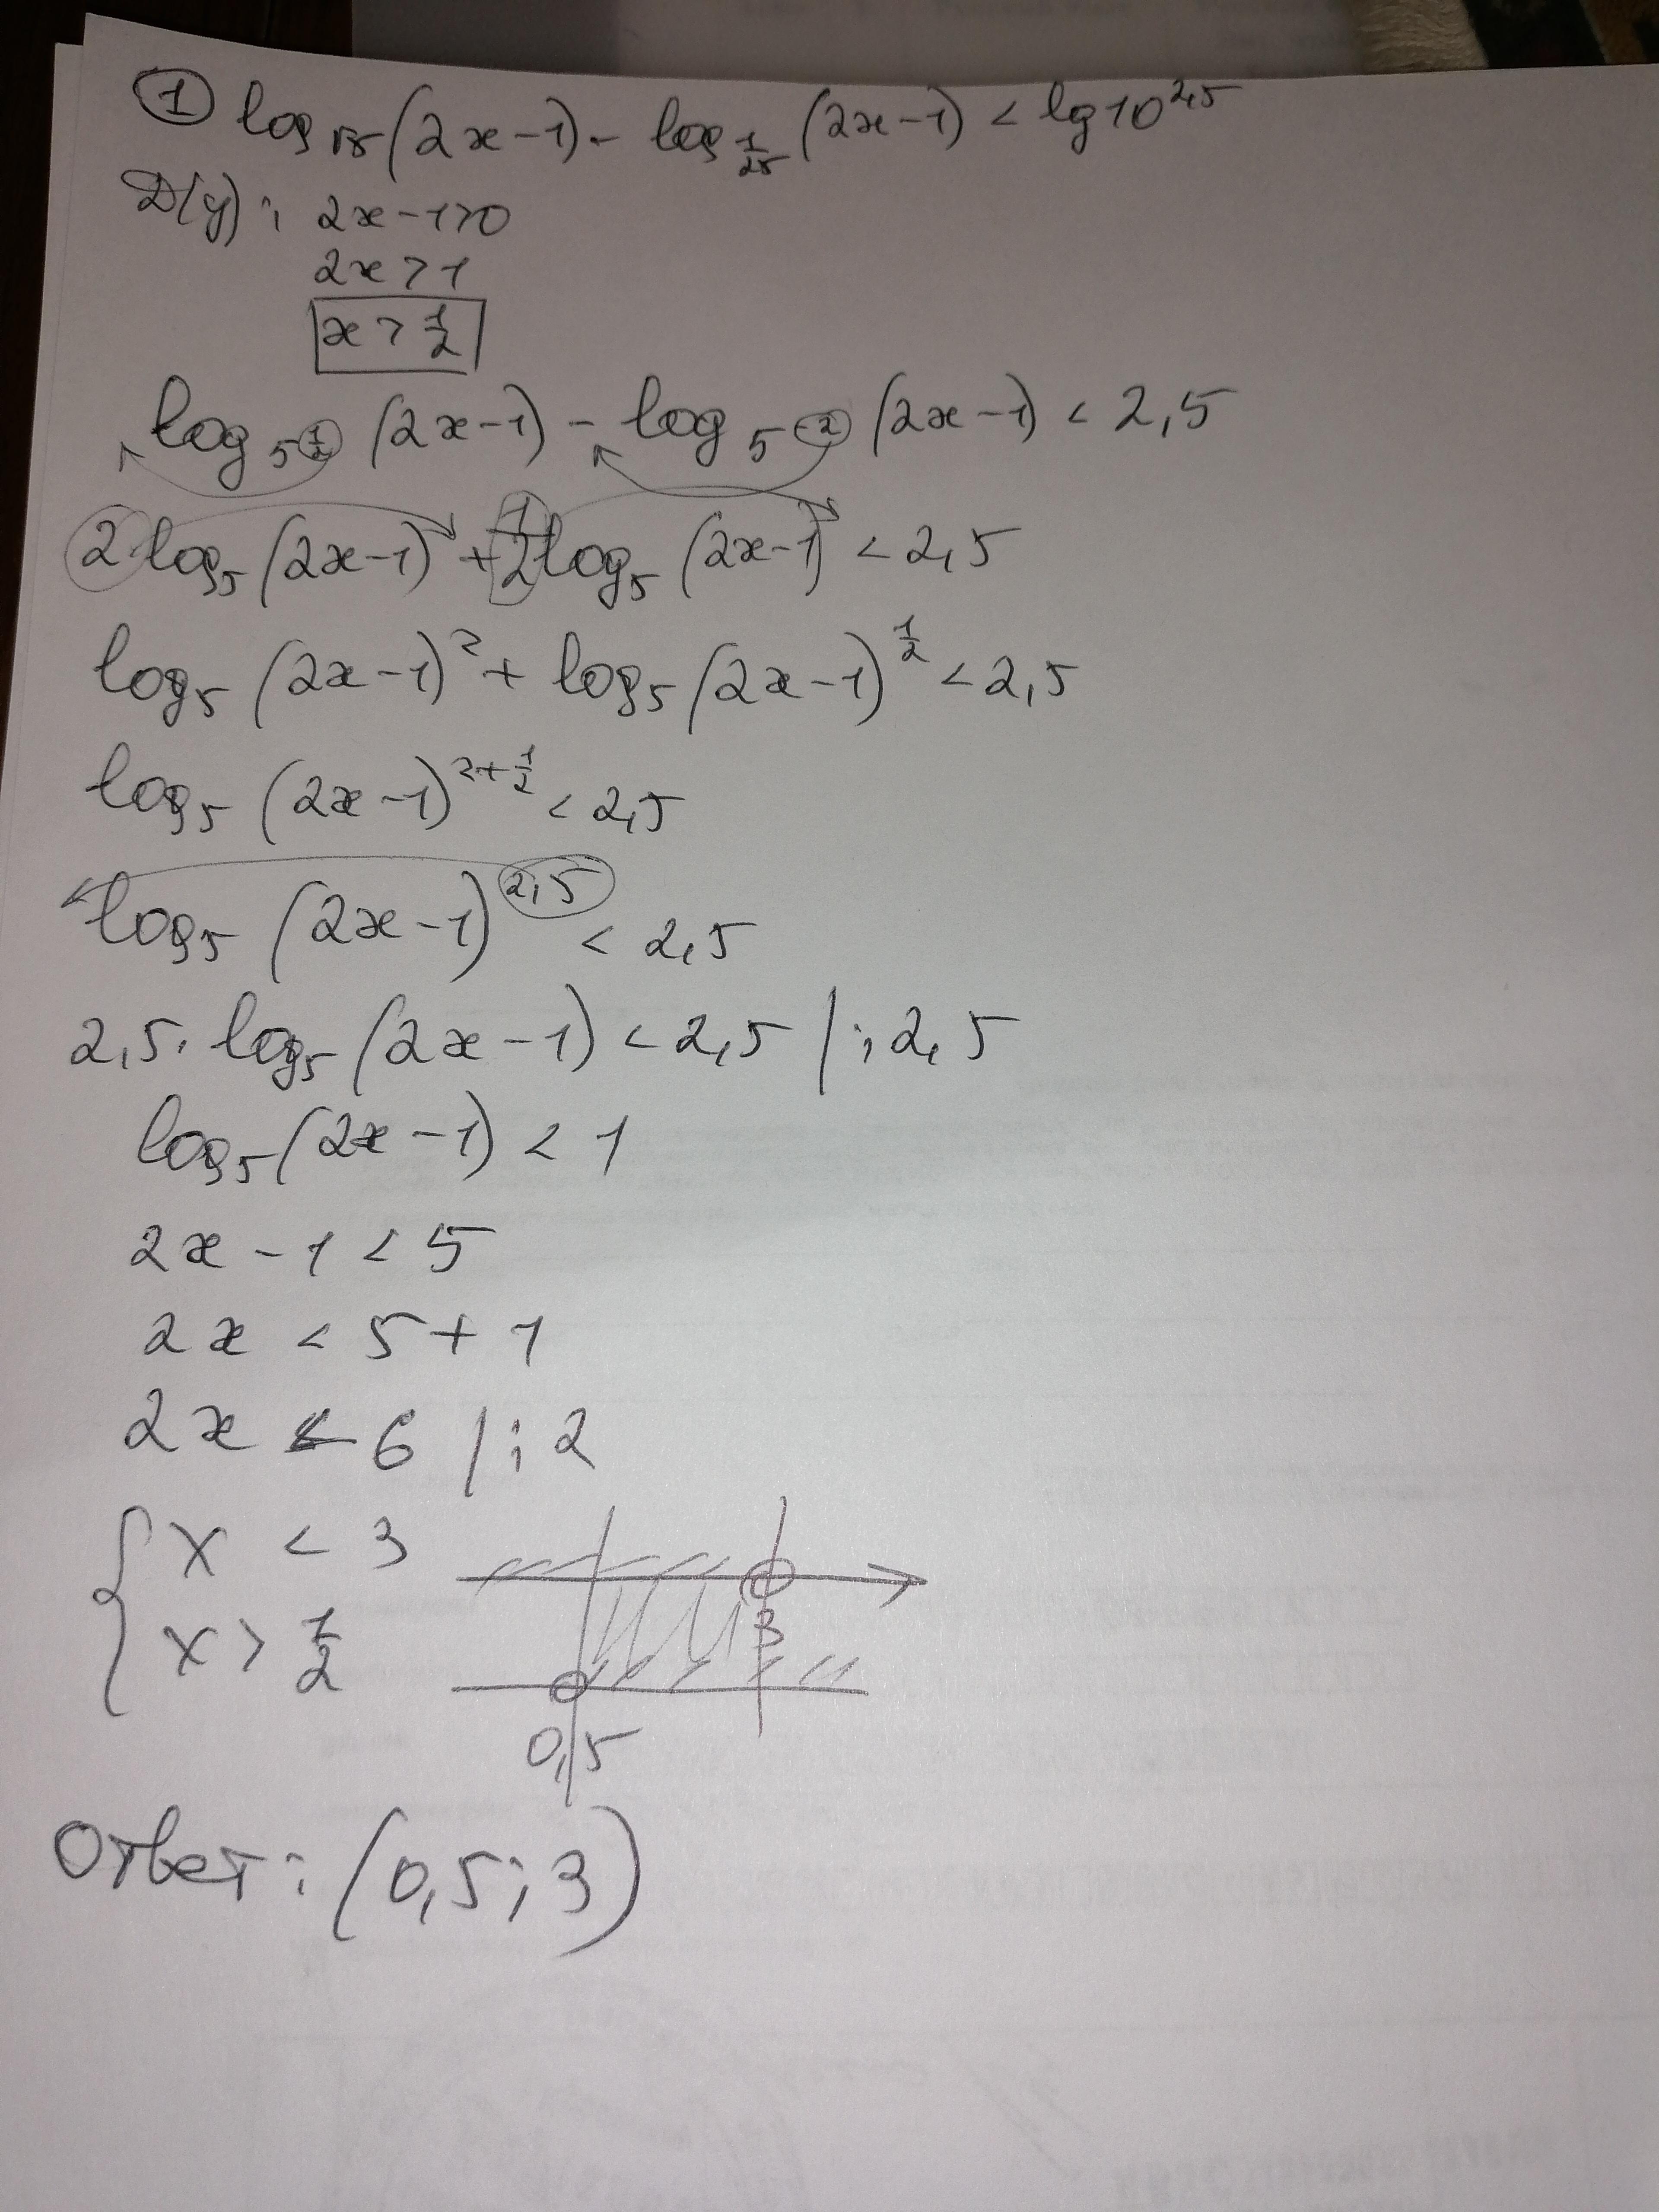 ① log√5 (2x-1) - log1/25 (2x-1) < lg10^2,5
D(y): 2x-1>0
2x>1
x > 1/2
log5^1/2 (2x-1) - log5^-2 (2x-1) < 2,5
2 log5 (2x-1) + 1/2 log5 (2x-1) < 2,5
log5 (2x-1)^2 + log5 (2x-1)^1/2 < 2,5
log5 (2x-1)^2+1/2 < 2,5
log5 (2x-1)^2,5 < 2,5
2,5 · log5 (2x-1) < 2,5 | : 2,5
log5 (2x-1) < 1
2x - 1 < 5
2x < 5 + 1
2x < 6 | : 2
{ x < 3
x > 1/2
3
0,5
Ответ: (0,5; 3)